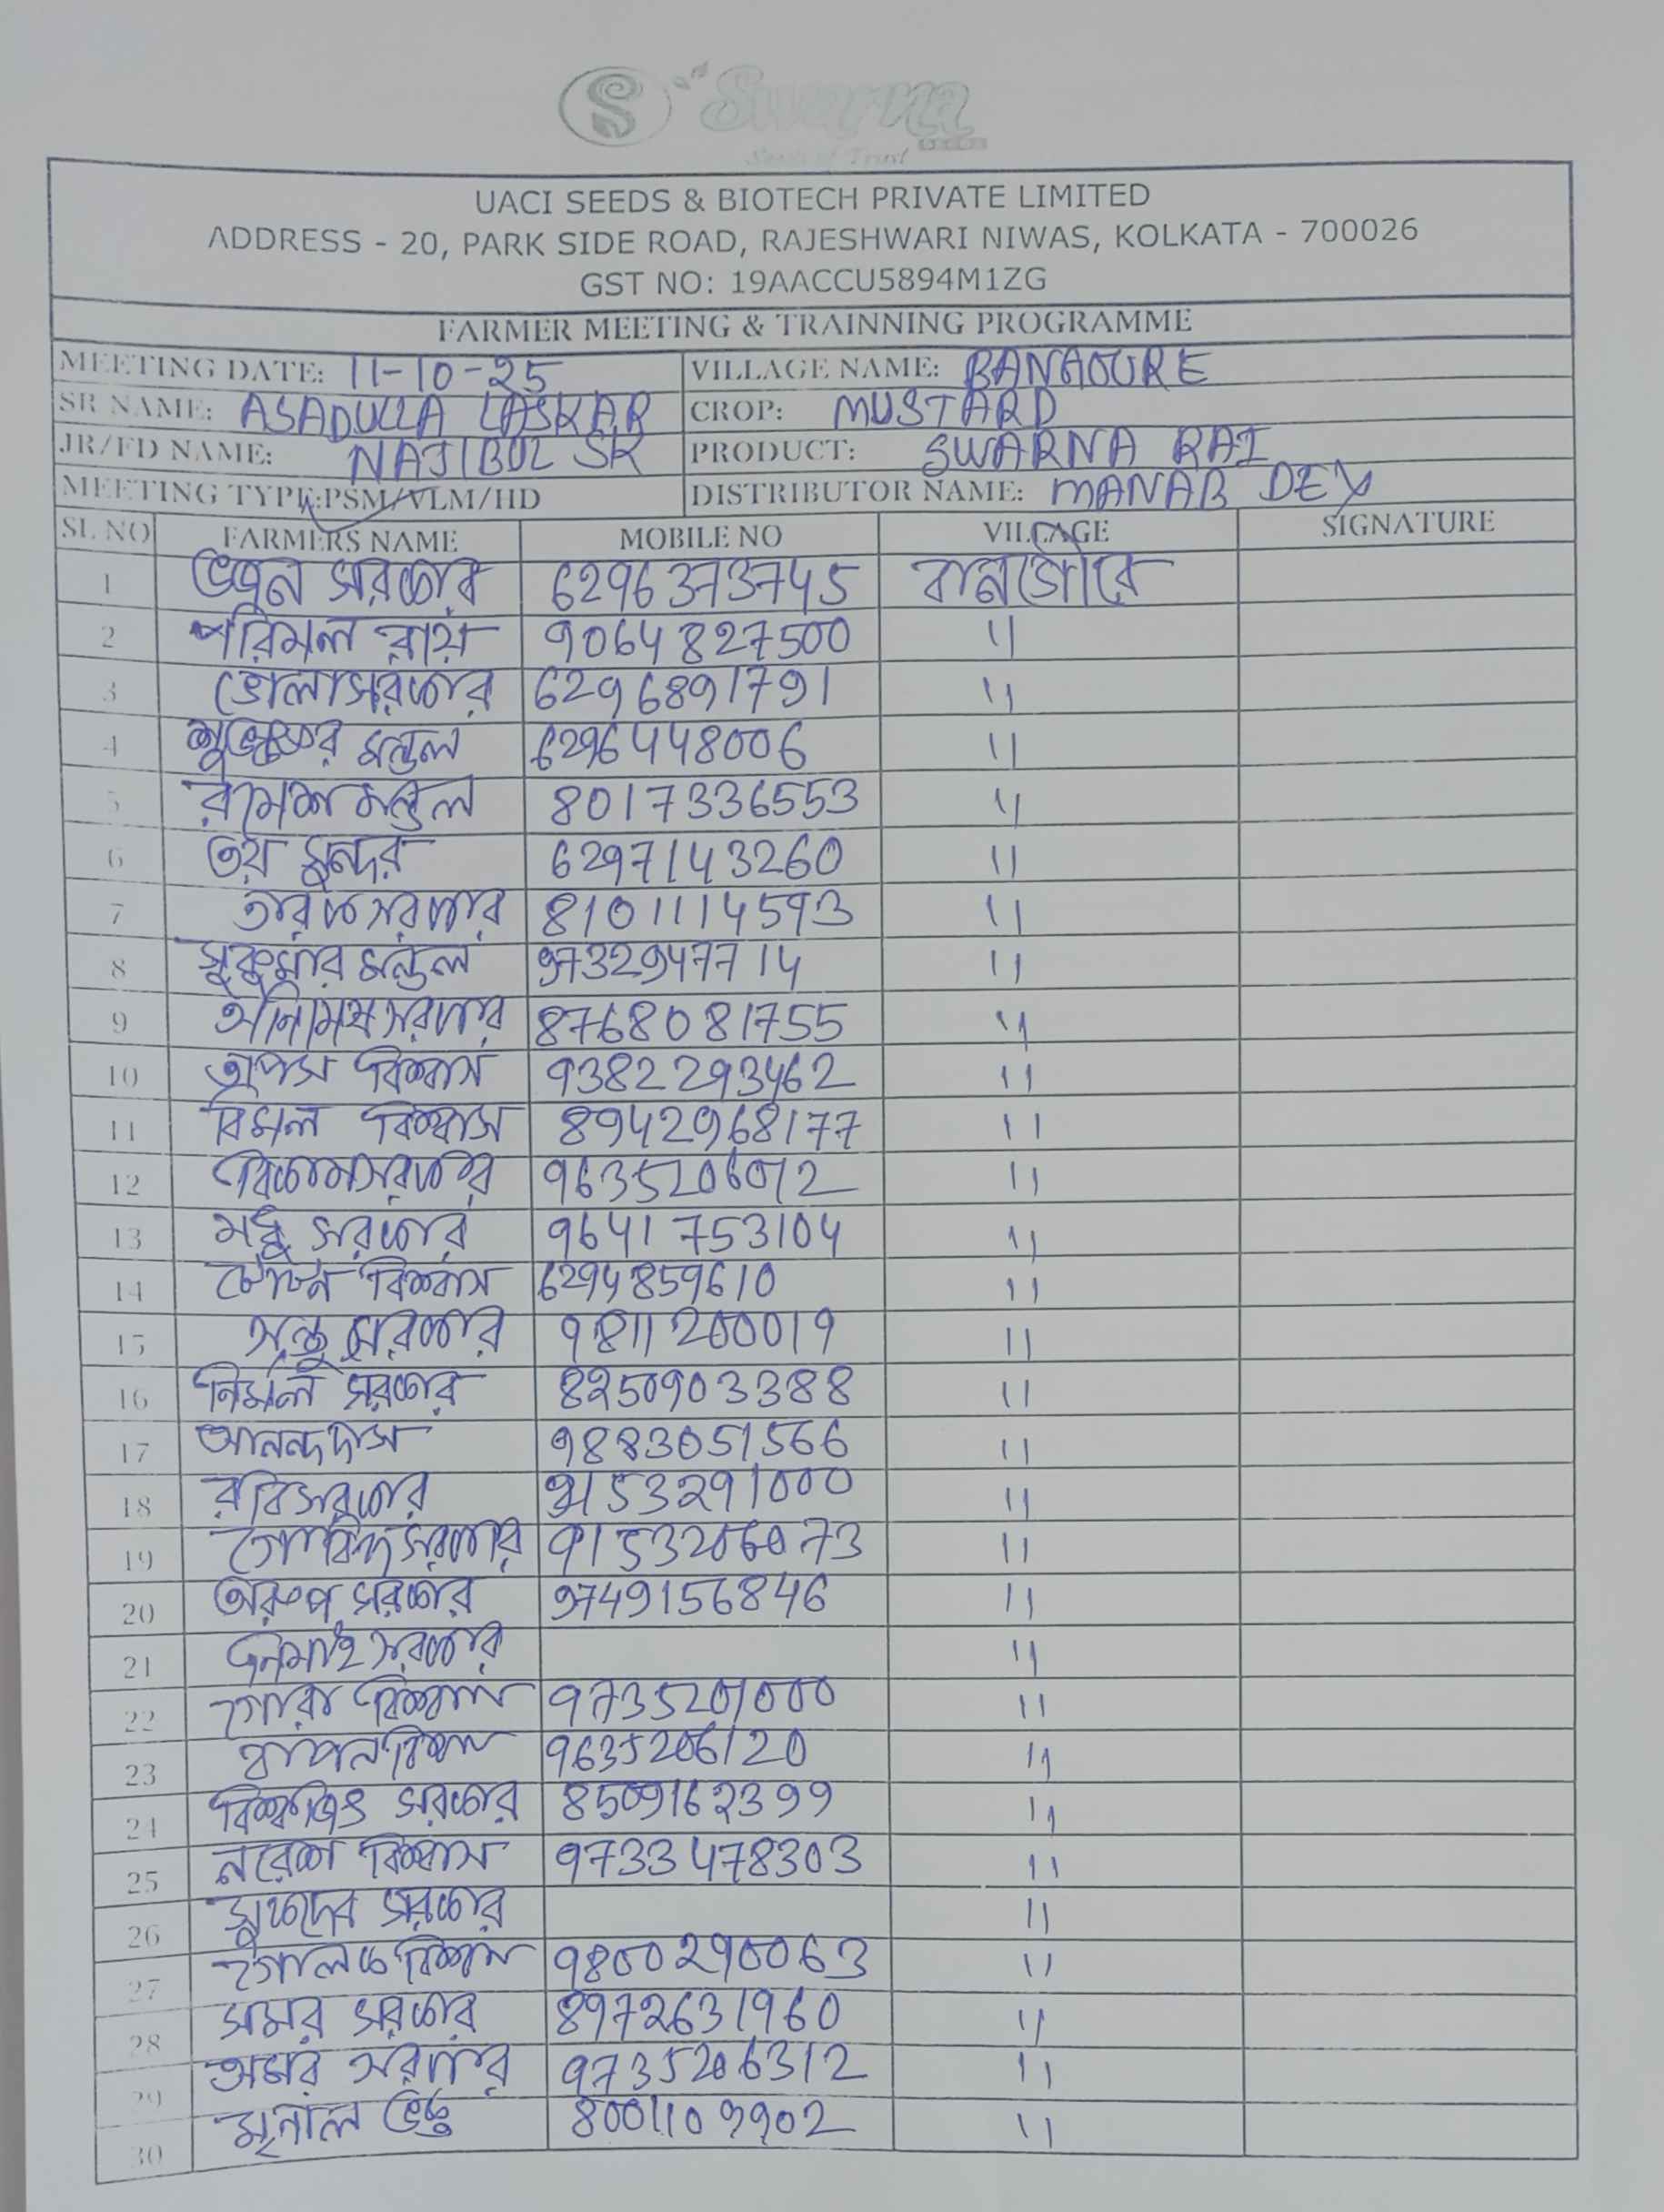 Swarna
Seeds of Trust
UACI SEEDS & BIOTECH PRIVATE LIMITED
ADDRESS - 20, PARK SIDE ROAD, RAJESHWARI NIWAS, KOLKATA - 700026
GST NO: 19AACCU5894M1ZG
FARMER MEETING & TRAINNING PROGRAMME
MEETING DATE: 11-10-25 VILLAGE NAME: BANAGOURE
SR NAME: ASADULLA LASKAR CROP: MUSTARD
JR/FD NAME: NAJIBUL SK PRODUCT: SWARNA RAI
MEETING TYPE:PSM/VLM/HD DISTRIBUTOR NAME: MANAB DEY
SL NO FARMERS NAME MOBILE NO VILLAGE SIGNATURE
1 সরকার 6296373745
2 পরিমল রায় 9064827500 11
3 ভোলা সরকার 6296891791 11
4 শুভঙ্কর মন্ডল 6296448006 11
5 রমেশ মন্ডল 8017336553 11
6 সুন্দর 6297143260 11
7 তারক সরকার 8101114593 11
8 সুকুমার মন্ডল 9732947714 11
9 অনিমেষ সরকার 8768081755 11
10 তাপস বিশ্বাস 9382293462 11
11 বিমল বিশ্বাস 8942968177 11
12 বিকাশ সরকার 9635206072 11
13 মধু সরকার 9641753104 11
14 টোটন বিশ্বাস 6294859610 11
15 সন্তু সরকার 9811200019 11
16 নির্মল সরকার 8250903388 11
17 আনন্দ দাস 9883051566 11
18 রবি সরকার 9153291000 11
19 গোবিন্দ সরকার 9153206073 11
20 অরুপ সরকার 9749156846 11
21 সরকার 11
22 গোরা বিশ্বাস 9735201000 11
23 বিশ্বাস 9635206120 11
24 বিশ্বজিৎ সরকার 8509162399 11
25 নরেশ বিশ্বাস 9733478303 11
26 সুকদেব সরকার 11
27 গোলক বিশ্বাস 9800290063 11
28 সমর সরকার 8972631960 11
29 অমর সরকার 9735206312 11
30 মৃনাল 8001109902 11